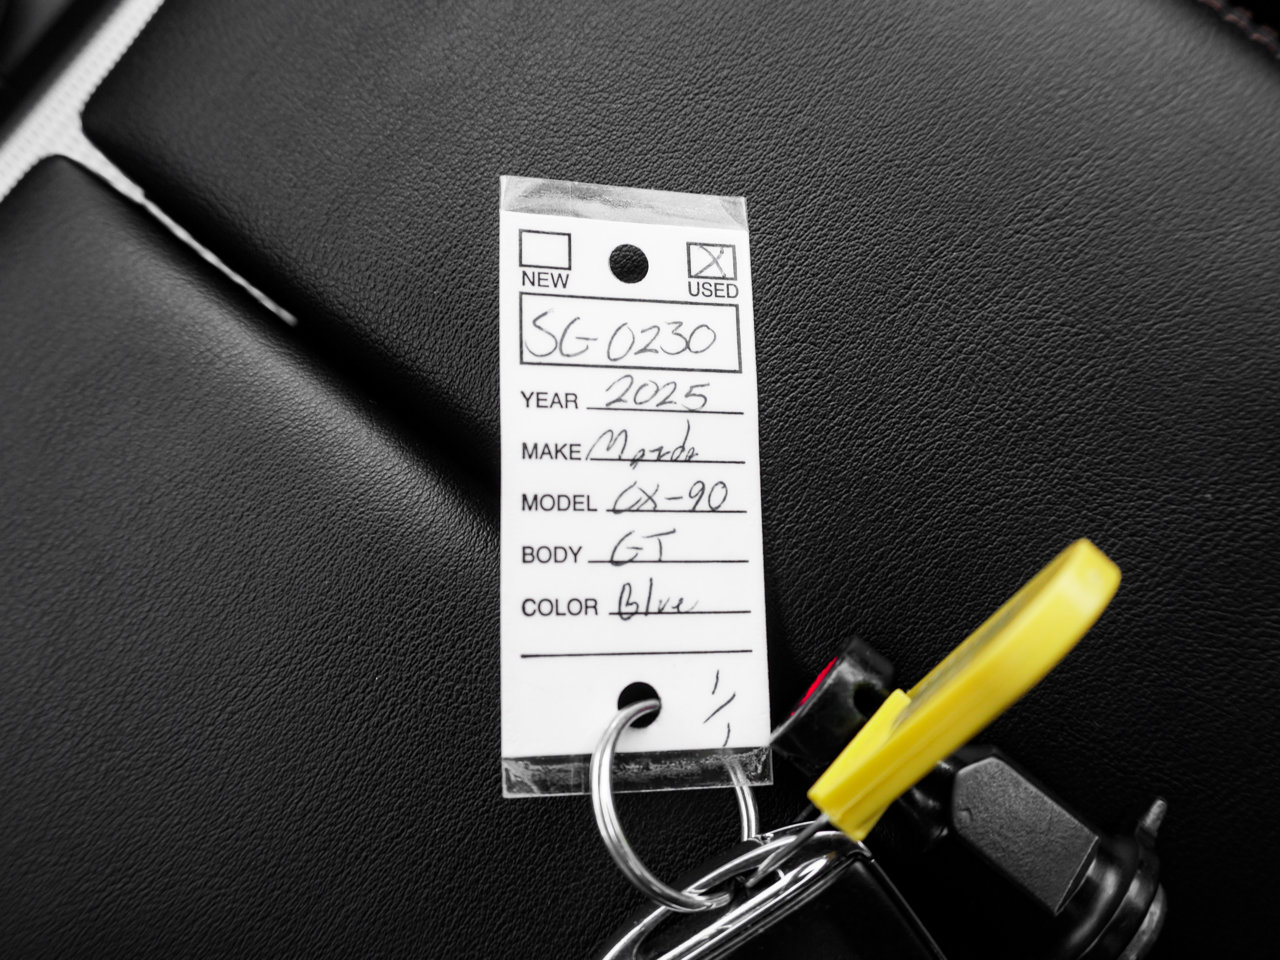 NEW USED
SG-0230
YEAR 2025
MAKE Mazda
MODEL CX-90
BODY GT
COLOR Blue
1/1